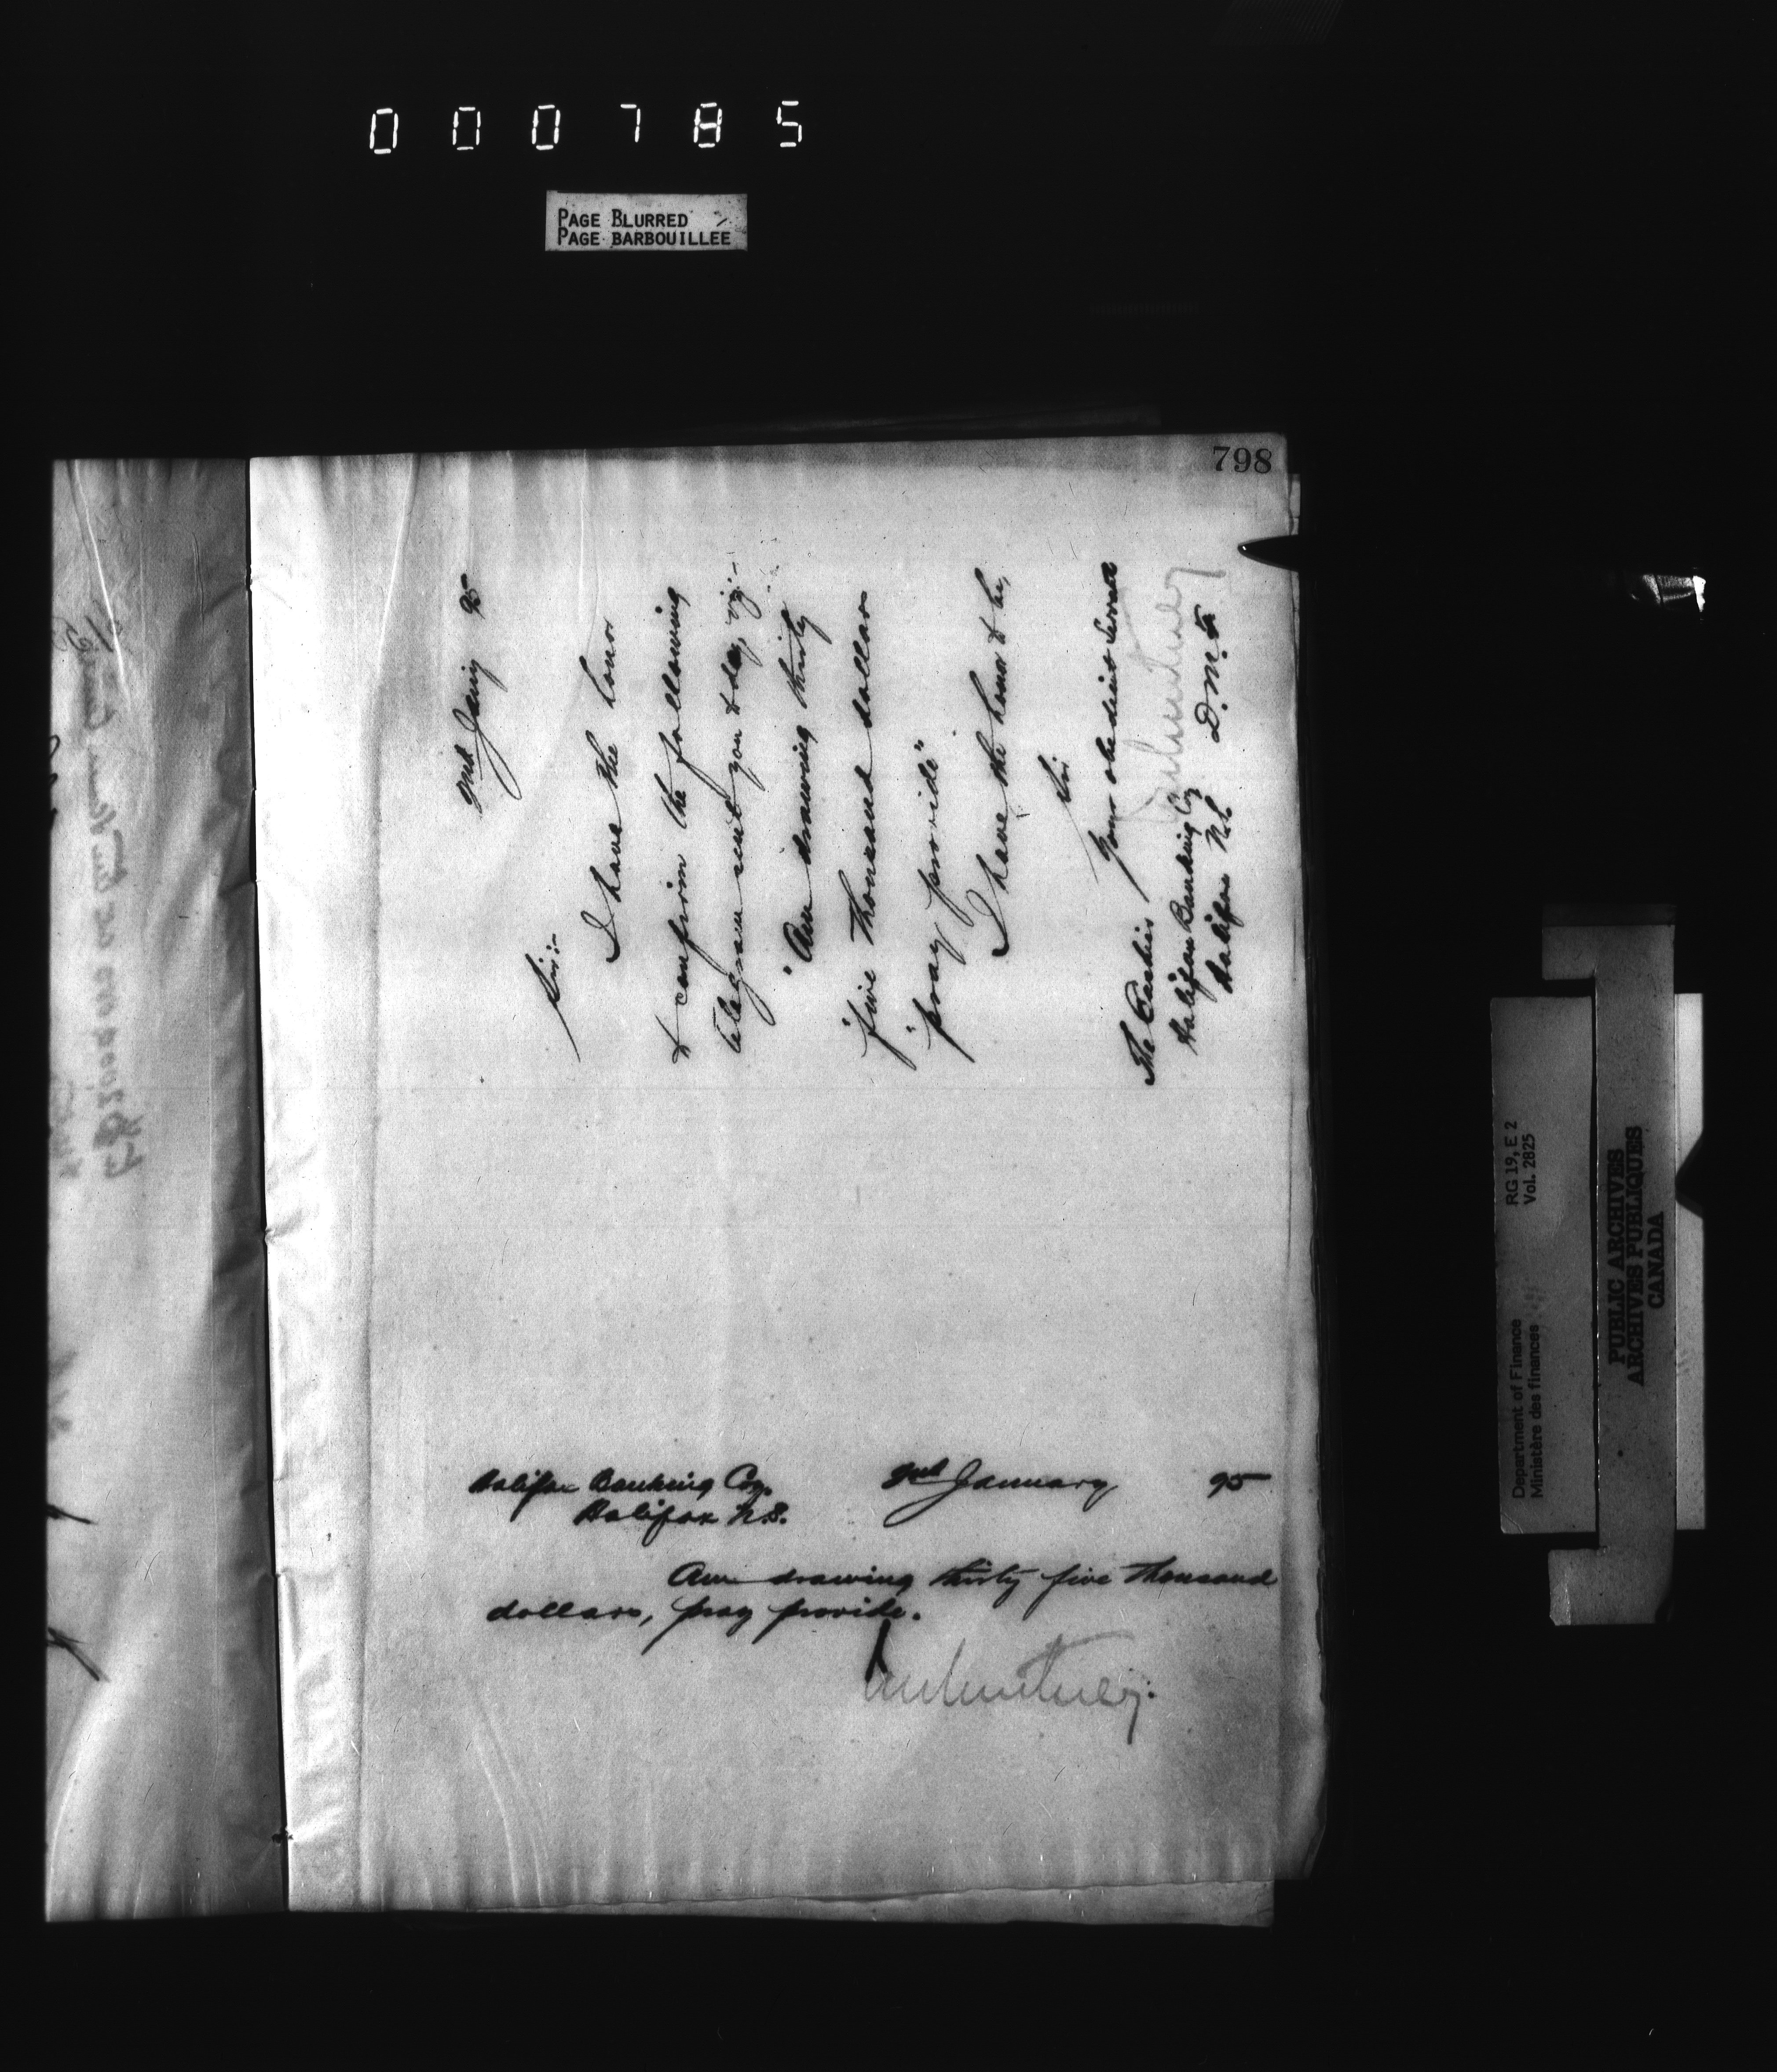 000785
PAGE BLURRED
PAGE BARBOUILLÉE
798
2nd Jany 95
Sir:-
I have the honor
to confirm the following
telegram sent you today, viz:-
"Am drawing thirty
"five thousand dollars
"pray provide"
I have the honor to be,
Sir
Your obedient Servant
The Cashier
Halifax Banking Co
Halifax N.S.
D.M.F.
Halifax Banking Coy.
Halifax N.S.
2nd January 95
Am drawing thirty five thousand
dollars, pray provide.
Department of Finance
Ministère des finances
RG 19, E 2
Vol. 2825
PUBLIC ARCHIVES
ARCHIVES PUBLIQUES
CANADA